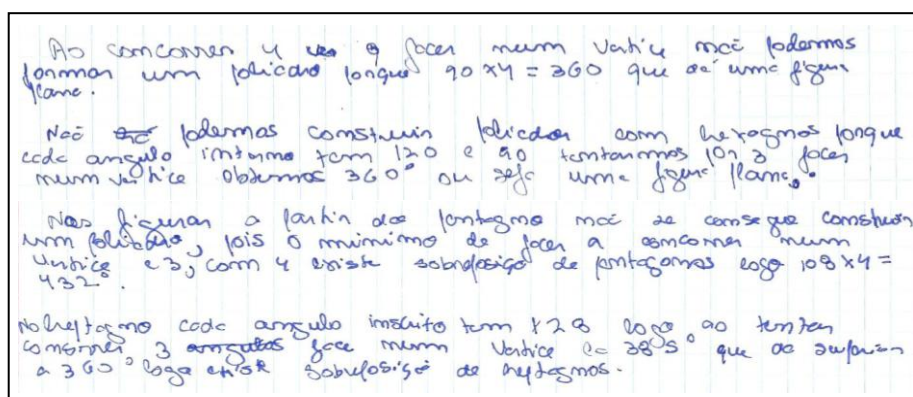 Ao concorrer 4 faces num vertice não podemos
formar um poliedro porque 90 x 4 = 360 que dá uma figura
plana.
Não podermos construir poliedros com hexagonos porque
cada angulo interno tem 120 e ao tentarmos por 3 faces
num vertice obtemos 360° ou seja uma figura plana.
Nas figuras a partir do pentagno não se consegue construir
um poliedro, pois o minimo de faces a concorrer num
vertice é 3, com 4 existe sobreposição de pentagonos logo 108 x 4 =
432°.
No heptagno cada angulo inscrito tem 128 logo ao tentar
concorrer 3 angulos face num vertice 385° que dá superior
a 360° logo existe sobreposição de heptagnos.